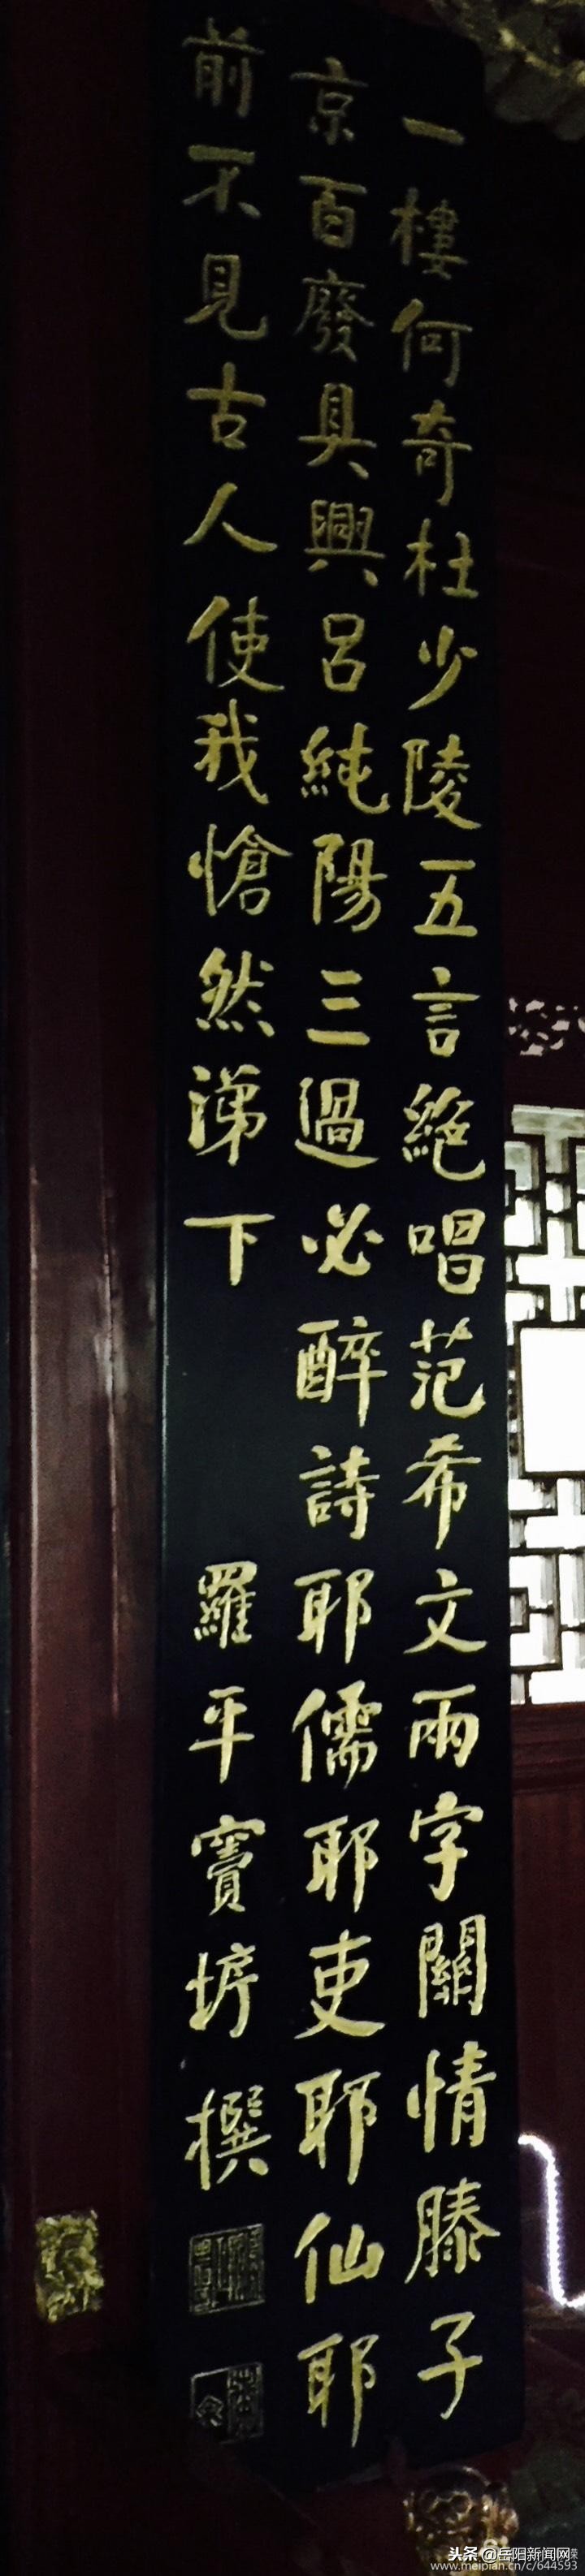 一樓何奇杜少陵五言絕唱范希文兩字關情滕子
京百廢具興呂純陽三過必醉詩耶儒耶吏耶仙耶
前不見古人使我愴然涕下
羅平竇垿撰
头条 @岳阳新闻网
www.meipian.cn/c/644593